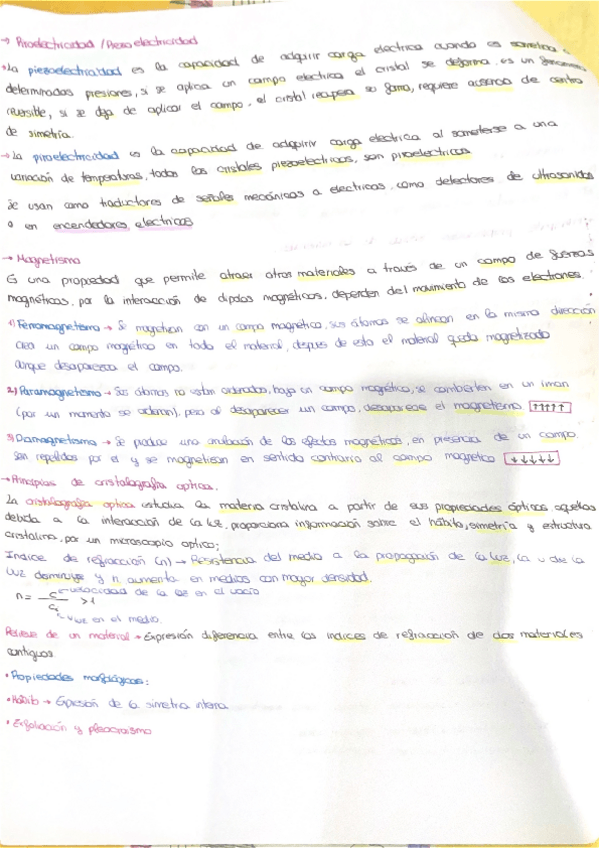 → Piroelectricidad / Piezoelectricidad
→ La piezoelectricidad es la capacidad de adquirir carga electrica cuando es sometida a
determinadas presiones, si se aplica un campo electrico el cristal se deforma, es un
reversible, si se deja de aplicar el campo, el cristal recupera su forma, requiere ausencia de centro
de simetría.
→ La piroelectricidad es la capacidad de adquirir carga electrica al someterse a una
variación de temperaturas, todos los cristales piezoelectricos, son piroelectricos
Se usan como traductores de señales mecánicas a electricas, como detectores de ultrasonidos
o en encendedores electricos
→ Magnetismo
Es una propiedad que permite atraer otros materiales a través de un campo de fuerzas
magnéticas, por la interacción de dipolos magneticos, dependen del movimiento de los electrones.
1) Ferromagnetismo → Se magnetizan con un campo magnético, sus átomos se alinean en la misma dirección
crea un campo magnetico en todo el material, despues de esto el material queda magnetizado
aunque desaparezca el campo.
2) Paramagnetismo → Sus átomos no estan ordenados, bajo un campo magnético, se convierten en un iman
(por un momento se ordenan), pero al desaparecer un campo, desaparece el magnetismo ↑↑↑↑↑
3) Diamagnetismo → Se produce una anulación de los efectos magnéticos, en presencia de un campo
son repelidos por el y se magnetizan en sentido contrario al campo magnetico ↓↓↓↓↓
→ Principios de cristalografia optica.
La cristalografia optica estudia la materia cristalina a partir de sus propiedades ópticas aquellas
debida a la interacción de la luz, proporciona información sobre el hábito, simetría y estructura
cristalina, por un microscopio optico;
Indice de refracción (n) → Resistencia del medio a la propagación de la luz, la v de la
luz disminuye y n aumenta en medios con mayor densidad.
n = c/c₁ > 1 c → velocidad de la luz en el vacío
c₁ → v luz en el medio.
Relieve de un material → Expresión diferencia entre los indices de refracción de dos materiales
contiguos
• Propiedades morfológicas:
• Hábito → Expresión de la simetria interna
• Exfoliación y pleocroismo